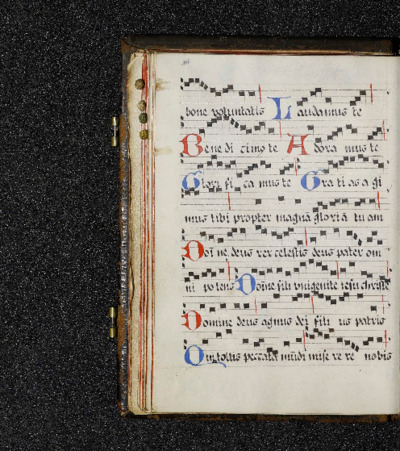 bone voluntatis Laudamus te
Bene di cimo te Adora mus te
Glori fi ca mus te Gra ti as a gi
mus tibi propter magnā gloriā tu am
Doī ne deus rex celestis deus pater om
ni po tens Doīne fili unigenite iesu christe
Domine deus agnus dei fili us patris
Qui tollis peccata mūdi mise re re nobis